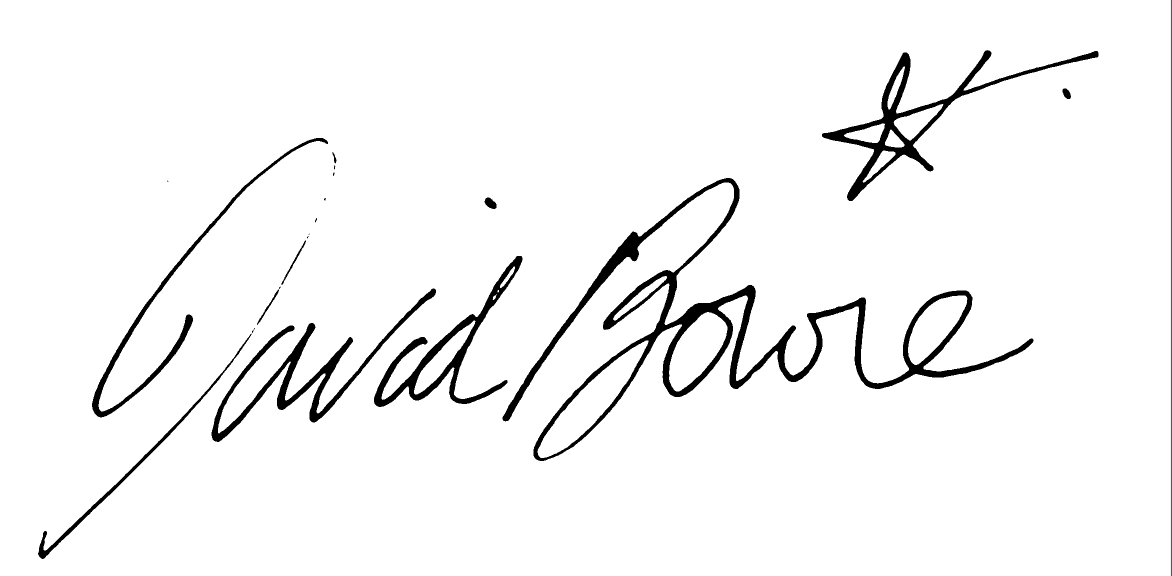 David Bowie